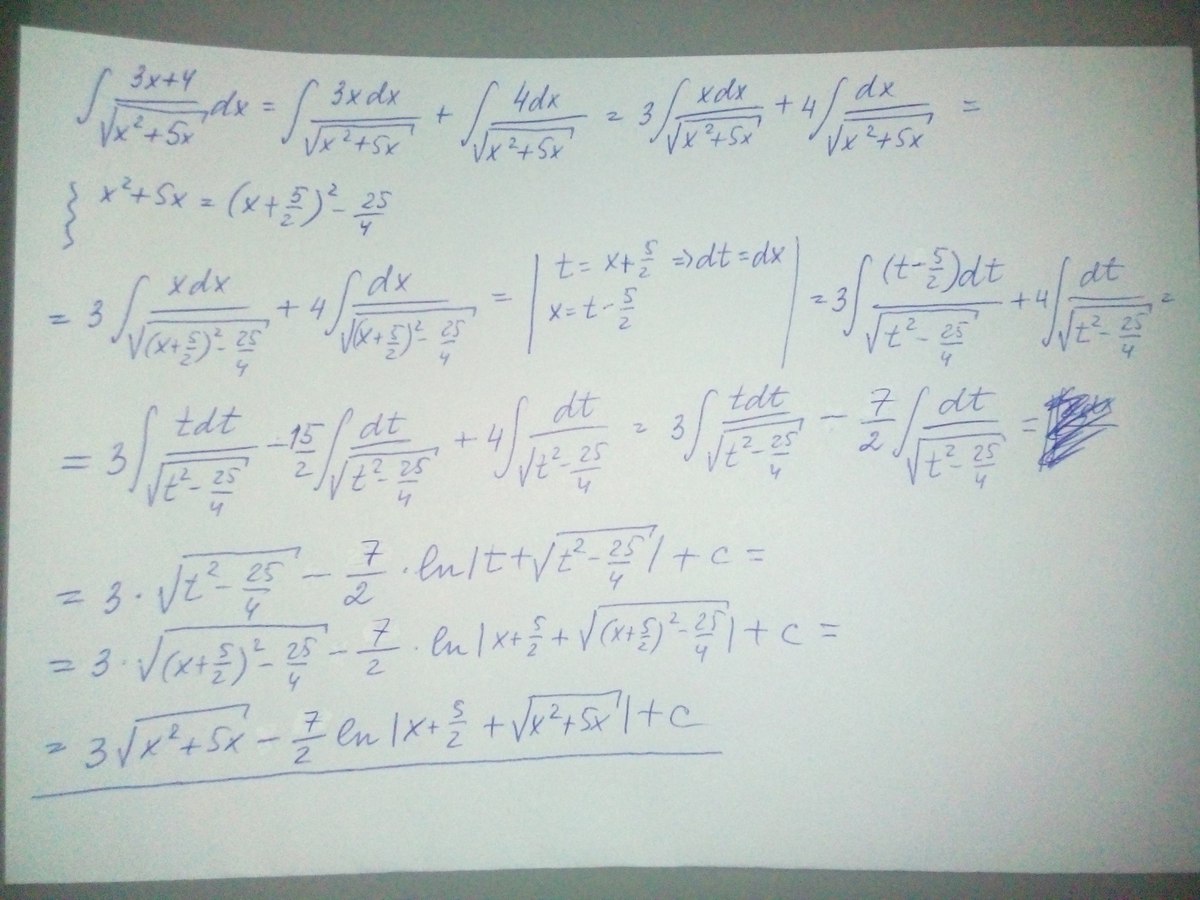 ∫ (3x+4)/√(x²+5x) dx = ∫ 3xdx/√(x²+5x) + ∫ 4dx/√(x²+5x) = 3∫ xdx/√(x²+5x) + 4∫ dx/√(x²+5x) =
} x²+5x = (x+5/2)² - 25/4
= 3∫ xdx/√((x+5/2)² - 25/4) + 4∫ dx/√((x+5/2)² - 25/4) = | t = x+5/2 => dt = dx x = t - 5/2 | = 3∫ (t-5/2)dt/√(t² - 25/4) + 4∫ dt/√(t² - 25/4) =
= 3∫ tdt/√(t² - 25/4) - 15/2 ∫ dt/√(t² - 25/4) + 4∫ dt/√(t² - 25/4) = 3∫ tdt/√(t² - 25/4) - 7/2 ∫ dt/√(t² - 25/4) =
= 3 · √(t² - 25/4) - 7/2 · ln|t + √(t² - 25/4)| + c =
= 3 · √((x+5/2)² - 25/4) - 7/2 · ln|x+5/2 + √((x+5/2)² - 25/4)| + c =
= 3√(x²+5x) - 7/2 ln|x+5/2 + √(x²+5x)| + c